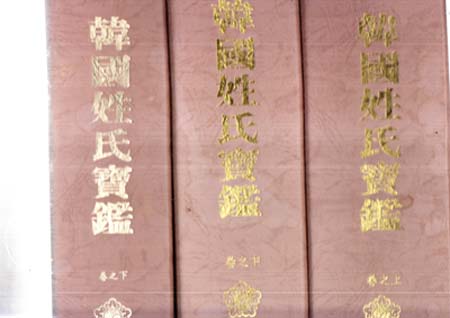 韓國姓氏寶鑑
卷之下
韓國姓氏寶鑑
卷之下
韓國姓氏寶鑑
卷之上